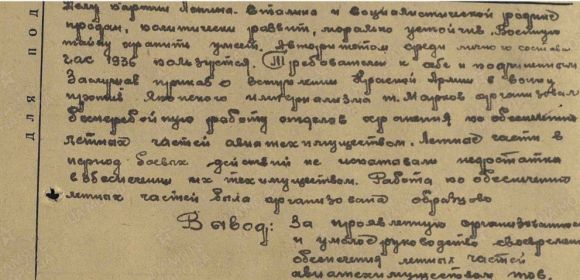 Делу партии Ленина. Сталина и Социалистической родине
предан, политически развит, морально устойчив. Военную
тайну хранить умеет. Авторитетом среди личного состава
гас 1936 пользуется. Требователен к себе и подчиненным
Заслушав приказ о вступлении Красной Армии в войну
против Японского империализма т. Марков организовал
бесперебойную работу отделов хранения по обеспечению
летных частей авиатехимуществом. Летные части в
период боевых действий не испытавали недостатка
в обеспечении их техимуществом. Работа по обеспечению
летных частей была организована образцово
Вывод: За проявленную организованность
и умелое руководство своевремен
обеспечения летных частей
авиатехимуществом тов.
ДЛЯ ПОД